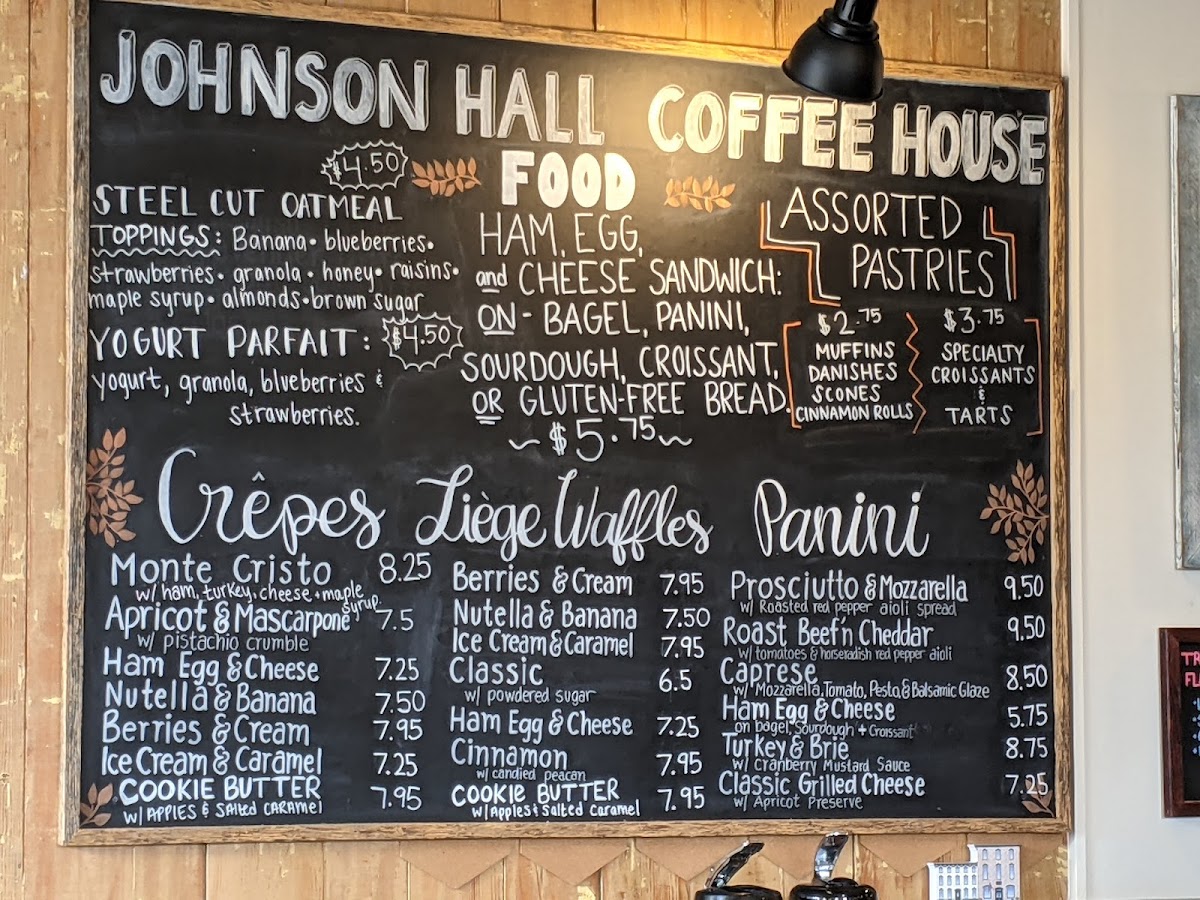 JOHNSON HALL COFFEE HOUSE
FOOD
$4.50
STEEL CUT OATMEAL
TOPPINGS: Banana • blueberries •
strawberries • granola • honey • raisins •
maple syrup • almonds • brown sugar
YOGURT PARFAIT: $4.50
yogurt, granola, blueberries &
strawberries.
HAM, EGG,
and CHEESE SANDWICH:
ON - BAGEL, PANINI,
SOURDOUGH, CROISSANT,
OR GLUTEN-FREE BREAD.
~ $5.75 ~
ASSORTED
PASTRIES
$2.75
MUFFINS
DANISHES
SCONES
CINNAMON ROLLS
$3.75
SPECIALTY
CROISSANTS
&
TARTS
Crêpes
Monte Cristo 8.25
w/ ham, turkey, cheese + maple
syrup
Apricot & Mascarpone 7.5
w/ pistachio crumble
Ham Egg & Cheese 7.25
Nutella & Banana 7.50
Berries & Cream 7.95
Ice Cream & Caramel 7.25
COOKIE BUTTER 7.95
w/ APPLES & SALTED CARAMEL
Liège Waffles
Berries & Cream 7.95
Nutella & Banana 7.50
Ice Cream & Caramel 7.95
Classic 6.5
w/ powdered sugar
Ham Egg & Cheese 7.25
Cinnamon 7.95
w/ candied peacan
COOKIE BUTTER 7.95
w/ Apples & Salted Caramel
Panini
Prosciutto & Mozzarella 9.50
w/ Roasted red pepper aioli spread
Roast Beef 'n Cheddar 9.50
w/ tomatoes & horseradish red pepper aioli
Caprese 8.50
w/ Mozzarella, Tomato, Pesto, & Balsamic Glaze
Ham Egg & Cheese 5.75
on bagel, Sourdough + Croissant
Turkey & Brie 8.75
w/ Cranberry Mustard Sauce
Classic Grilled Cheese 7.25
w/ Apricot Preserve